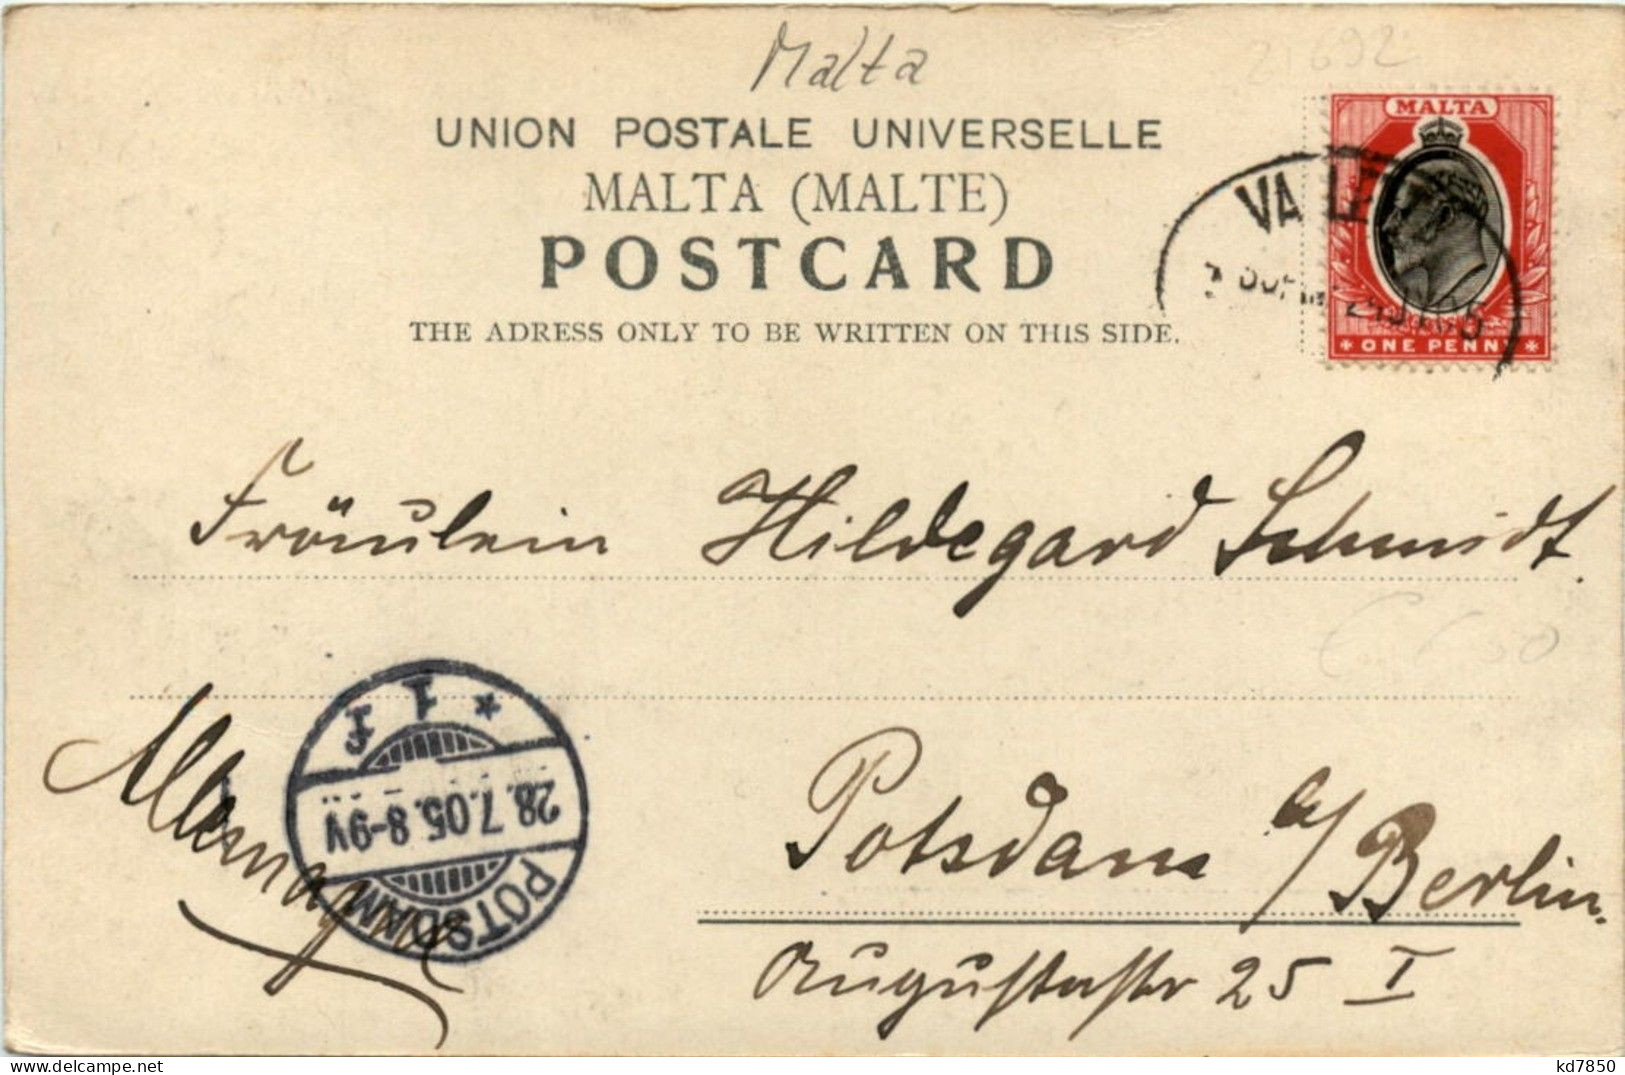 Malta
21692
UNION POSTALE UNIVERSELLE
MALTA (MALTE)
POSTCARD
THE ADRESS ONLY TO BE WRITTEN ON THIS SIDE.
MALTA
ONE PENNY
VALE
24 JY 05
Fräulein Hildegard Schmidt.
Allemagne
Potsdam a/Berlin.
Augustastr 25 I
* 1 *
28.7.05.8-9V
POTSDAM
kd7850